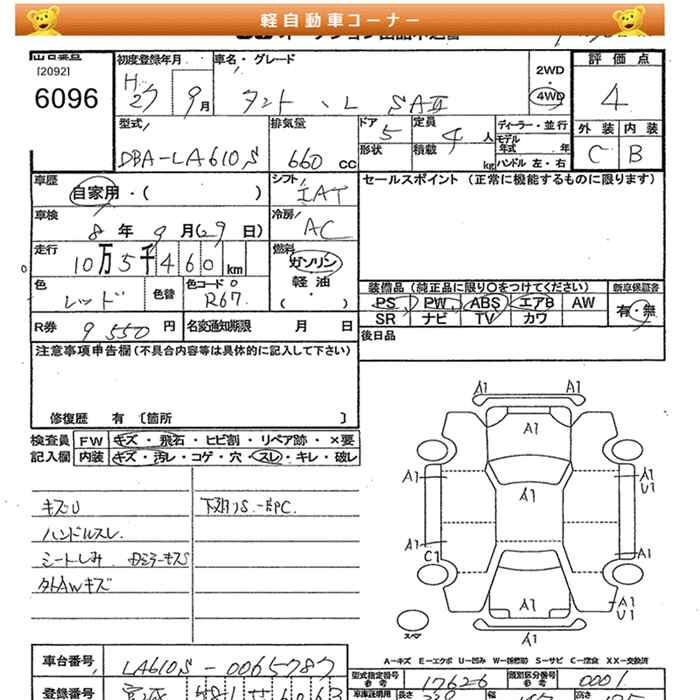 軽自動車コーナー
[2092]
6096
初度登録年月
H27 9月
車名・グレード
タント、L SAⅡ
2WD
・
4WD
評価点
4
外装 内装
C B
型式
DBA-LA610S
排気量
660 CC
ドア 5
形状
定員 4 人
積載 kg
ディーラー・並行
モデル年式 年
ハンドル 左・右
車歴
自家用・( )
シフト
IAT
セールスポイント (正常に機能するものに限ります)
車検
8年9月(29日)
冷房
AC
走行
10万5千460 km
燃料
ガソリン
軽油
・
( )
色
レッド
色替
色コード
R67
装備品 (純正品に限り○をつけてください)
新車保証書
PS PW ABS エアB AW
有・無
SR ナビ TV カワ
R券 9550円
名変通知期限 月 日
後日品
注意事項申告欄(不具合内容等は具体的に記入して下さい)
修復歴 有 〔箇所 〕
検査員 FW キズ・飛石・ヒビ割・リペア跡・×要
記入欄 内装 キズ・汚レ・コゲ・穴・スレ・キレ・破レ
キズU
ハンドルスレ
シートしみ
外AWキズ
A1 A1
A1
A1
A1 A1
U1
A1
C1
A1
A1
A1
U1
A1 A1
スペア
A-キズ E-エクボ U-凹み W-補修跡 S-サビ C-腐食 XX-交換済
車台番号
LA610S-0065787
登録番号
宮城 581
型式指定番号
参考
17626
類別区分番号
参考
0001
車庫証明用
長さ
幅
高さ